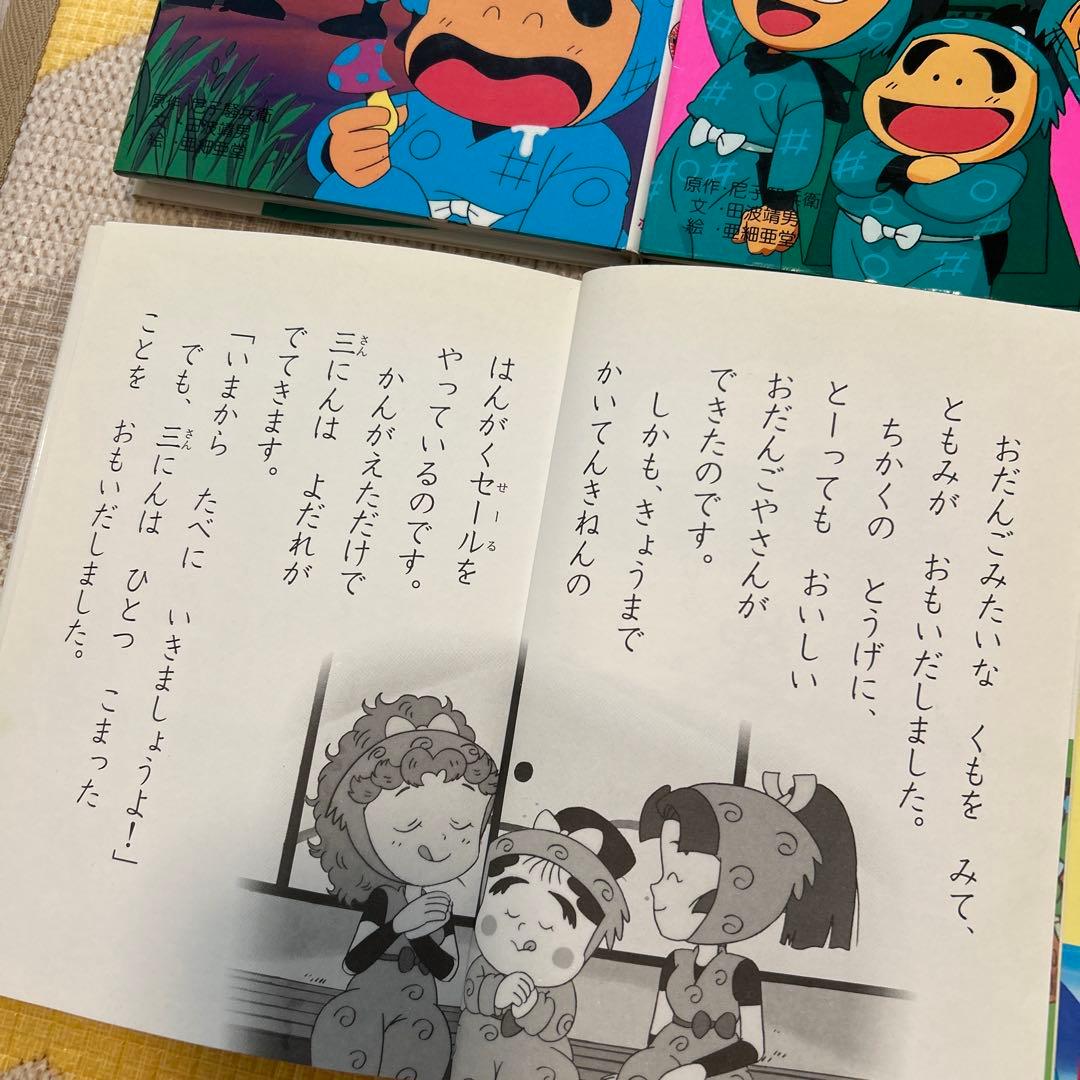 原作・尼子騒兵衛
文・田波靖男
絵・亜細亜堂
原作・尼子騒兵衛
文・田波靖男
絵・亜細亜堂
おだんごみたいな くもを みて、
ともみが おもいだしました。
ちかくの とうげに、
とーっても おいしい
おだんごやさんが
できたのです。
しかも、きょうまで
かいてんきねんの
はんがくセールを
せーる
やっているのです。
かんがえただけで
三にんは よだれが
さん
でてきます。
「いまから たべに いきましょうよ！」
でも、三にんは ひとつ こまった
さん
ことを おもいだしました。